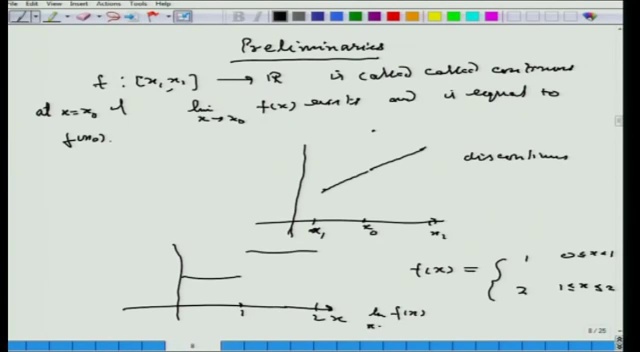 File Edit View Insert Actions Tools Help
Preliminaries
f : [x₁, x₁] ⟶ ℝ is called called continuous
at x=x₀ if lim x→x₀ f(x) exists and is equal to
f(x₀).
discontinuous
x₁ x₀ x₂
f(x) = { 1 0≤x<1
2 1≤x≤2
1 2 x lim x- f(x)
8 / 25
8